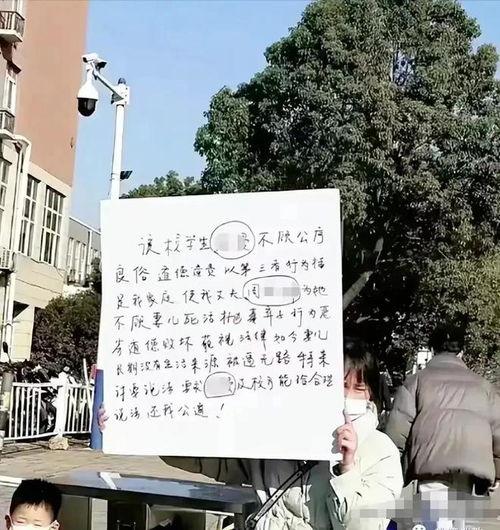 该校学生 不顾公序
良俗 道德 以第三者行为插
足我家庭 使我丈夫周 为她
不顾妻儿死活 抛 弃子行为恶
劣道德败坏 藐视法律 如今妻儿
长期没有生活来源 被逼无路 特来
讨要说法 要求 及校方能给合理
说法 还我公道！